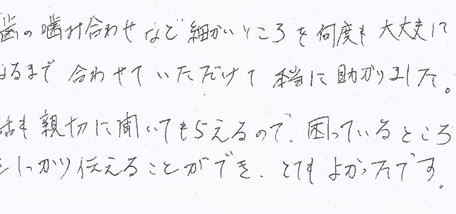 歯の噛み合わせなど細かいところを何度も大丈夫に
なるまで合わせていただけて本当に助かりました。
話も親切に聞いてもらえるので、困っているところ
をしっかり伝えることができ、とてもよかったです。